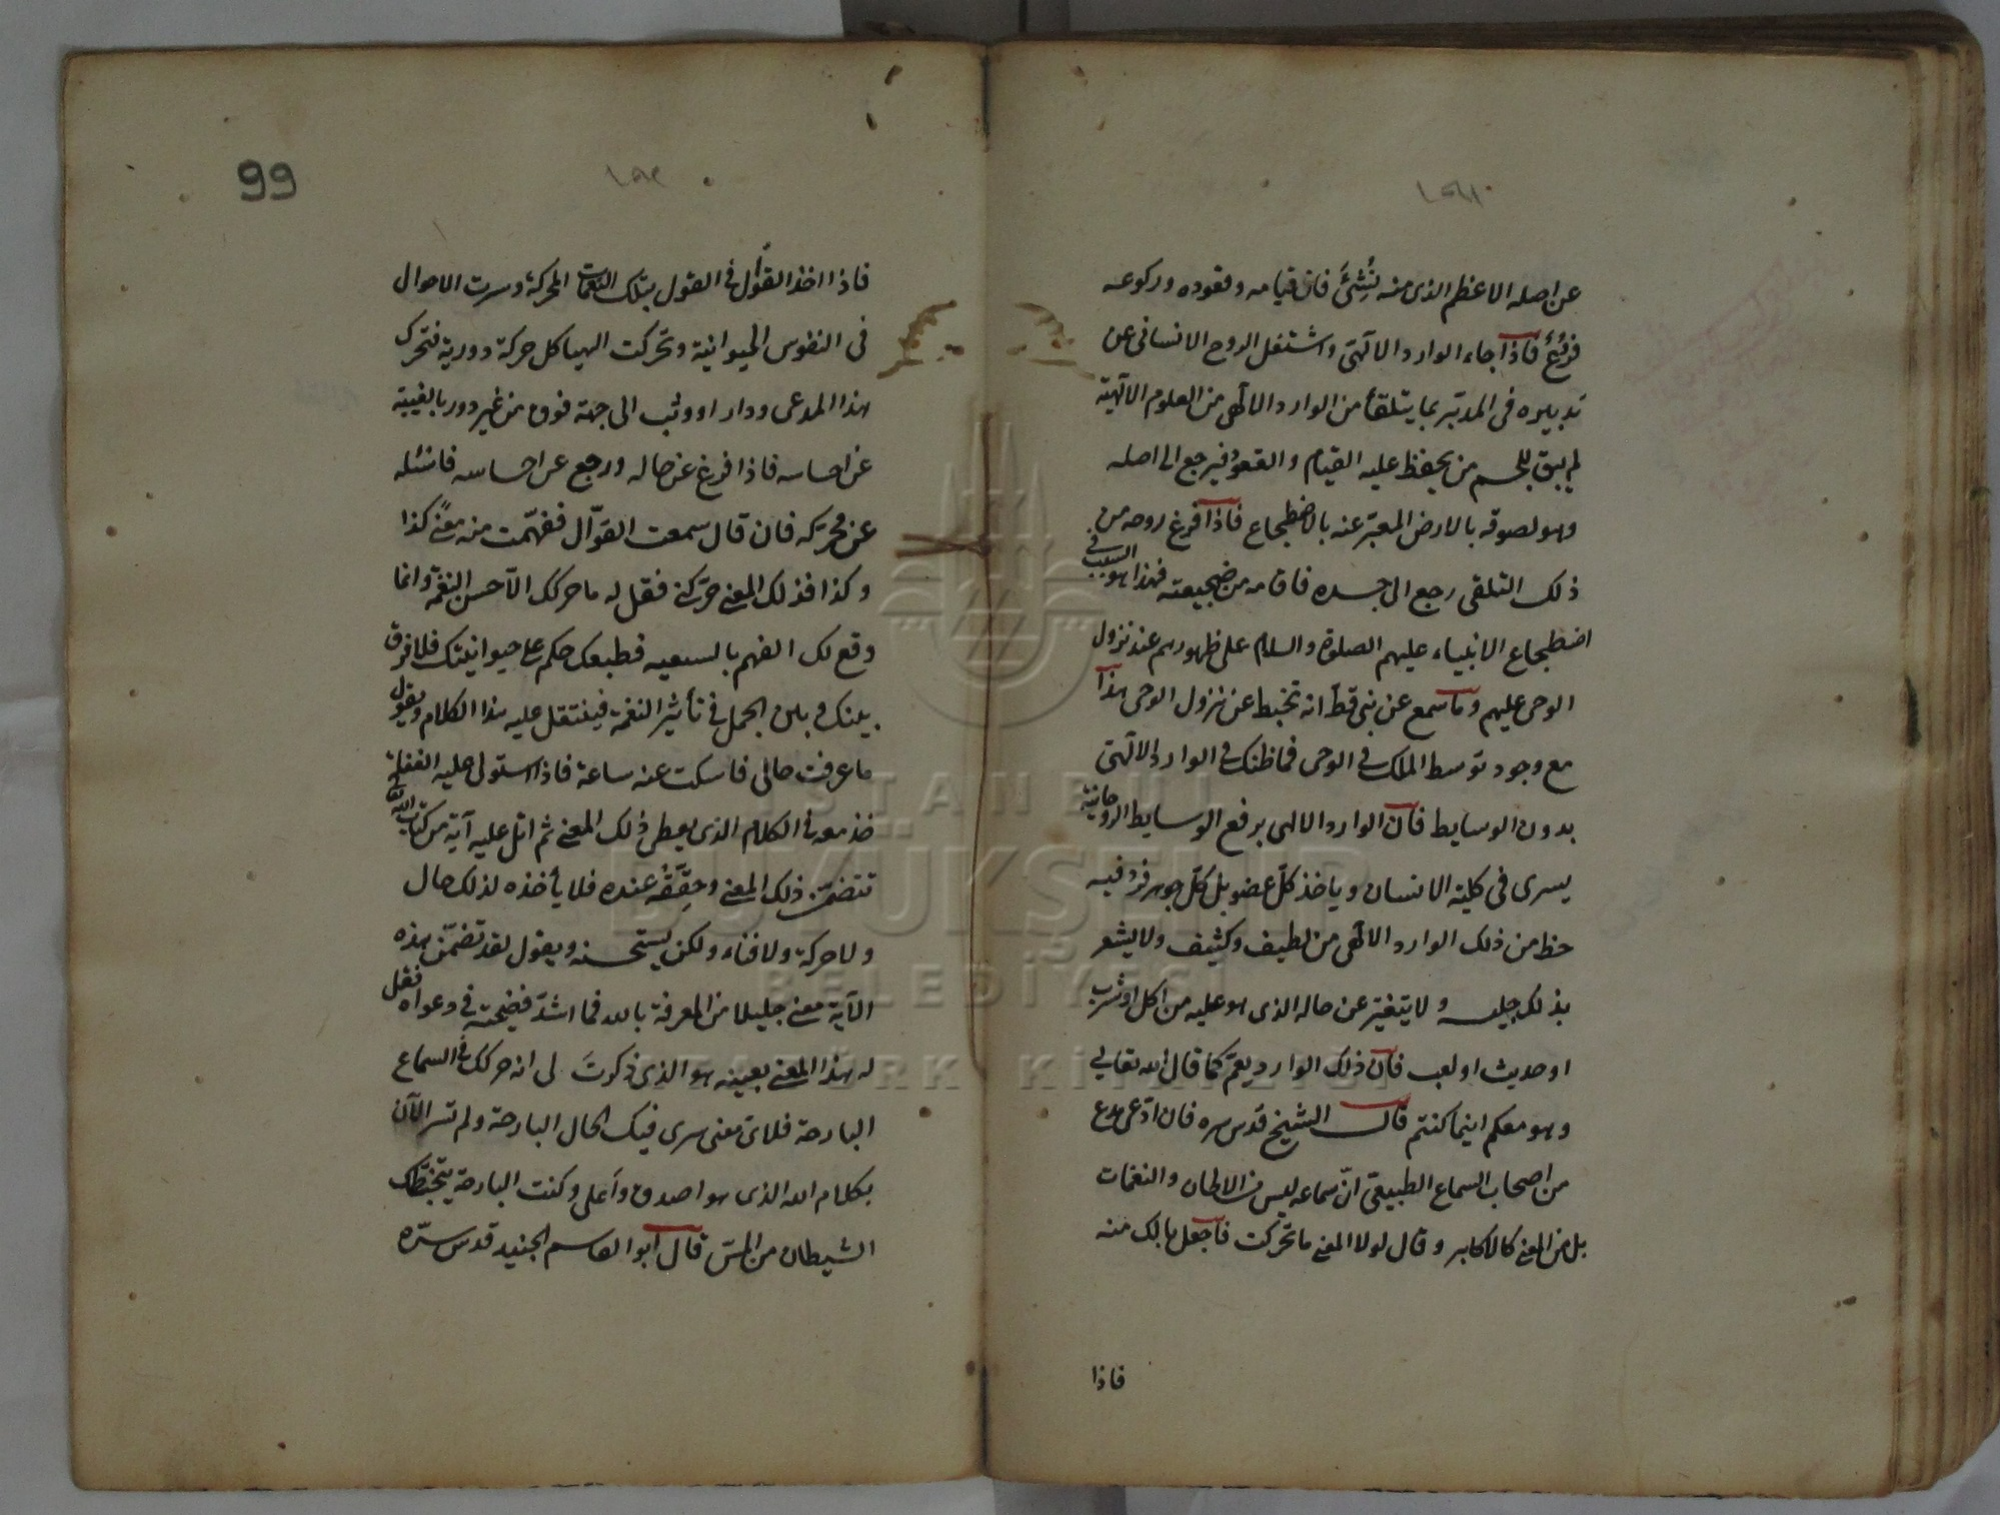 ١٩١
عن اصله الاعظم الذى منه نُشِئَ فان قيامه وقعوده وركوعه
فرعٌ فاذا جاء الوارد الالهى واشتغل الروح الانسانى عن
تدبيره فى المدبّر بما يتلقاه من الوارد الالهى من العلوم الالهية
لم يبق للجسم من يحفظ عليه القيام والقعود فيرجع الى اصله
وهو لصوقه بالارض المعبّر عنه بالاضطجاع فاذا فرغ روحه من
ذلك التلقى رجع الى جسده فاقامه من ضجعته فهذا هو السبب فى
اضطجاع الانبياء عليهم الصلوة والسلام على ظهورهم عند نزول
الوحى عليهم وما سمع عن نبى قط انه تخبط عن نزول الوحى هذا
مع وجود توسط الملك فى الوحى فما ظنك فى الوارد الالهى
بدون الوسايط فان الوارد الالهى برفع الوسايط الروحانية
يسرى فى كلية الانسان وياخذ كلّ عضو بل كلّ جوهر فرد فيه
حظ من ذلك الوارد الالهى من لطيف وكثيف ولا يشعر
بذلك جليسه ولا يتغير عن حاله الذى هو عليه من اكل او شرب
او حديث او لعب فان ذلك الوارد يعمّ كما قال الله تعالى
وهو معكم اينما كنتم قال الشيخ قدس سره فان ادّعى مدع
من اصحاب السماع الطبيعى انّ سماعه ليس فى الالحان والنغمات
بل فى المعنى كالاكابر وقال لولا المعنى ما تحركت فاجعل بالك منه
فاذا
99
١٩٢
فاذا اخذ القوال فى القول بتلك النغمات المحركة وسرت الاحوال
فى النفوس الحيوانية وتحركت الهياكل حركة دورية فتحرك
هذا المدعى ودار او وثب الى جهة فوق من غير دور بالغيبة
عن احساسه فاذا فرغ عن حاله ورجع عن احساسه فاسئله
عن محركه فان قال سمعت القوّال ففهمت منه معنى كذا
وكذا فذلك المعنى حركنى فقل له ما حركك الا حسن النغمة وانما
وقع لك الفهم بالسبعيه فطبعك حكم على حيوانيتك فلا فرق
بينك وبين الجمل فى تأثير النغمة فيثقل عليه هذا الكلام ويقول
ما عرفت حالى فاسكت عنه ساعة فاذا استولى عليه الغفلة
خذ معه فى الكلام الذى يعطى ذلك المعنى ثم اتل عليه آية من كتاب الله تعالى
تتضمن ذلك المعنى وحقّقه عنده فلا يأخذه لذلك حال
ولا حركة ولا فناء ولكن يستحسنه ويقول لقد تضمّن هذه
الآية معنى جليلا من المعرفة بالله فما اشدّ فضيحته فى دعواه فقل
له هذا المعنى بعينه هو الذى ذكرتَ لى انه حركك فى السماع
البارحة فلاىّ معنى سرى فيك الحال البارحة ولم تسر الآن
بكلام الله الذى هو اصدق واعلى وكنت البارحة يتخبطك
الشيطان من المسّ قال ابو القاسم الجنيد قدس سرّه